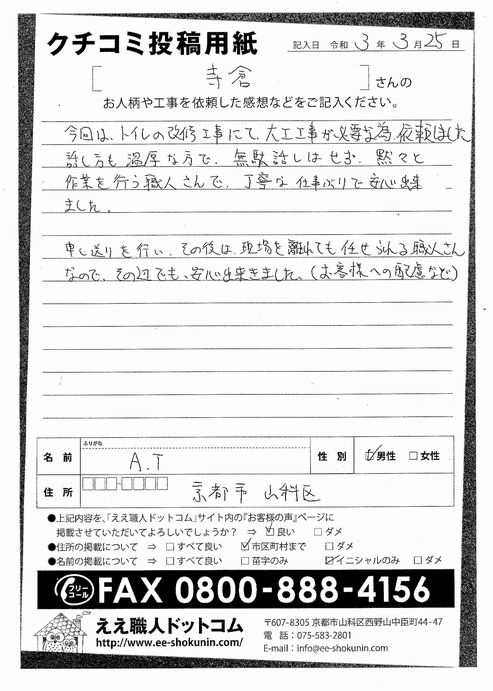 クチコミ投稿用紙
記入日 令和 3 年 3 月 25 日
[ 寺倉 ] さんの
お人柄や工事を依頼した感想などをご記入ください。
今回は、トイレの改修工事にて、大工工事が必要な為、依頼しました
話し方も温厚な方で、無駄話しはせず、黙々と
作業を行う職人さんで、丁寧な仕事ぶりで安心出来
ました。
申し送りを行い、その後は、現場を離れても任せられる職人さん
なので、その辺でも、安心出来きました。(お客様への配慮など)
ふりがな
名前 A.T 性別 ☑男性 □女性
住所 □□□-□□□□ 京都市 山科区
●上記内容を、「ええ職人ドットコム」サイト内の『お客様の声』ページに
掲載させていただいてよろしいでしょうか? ⇒ ☑良い □ダメ
●住所の掲載について ⇒ □すべて良い ☑市区町村まで □ダメ
●名前の掲載について ⇒ □すべて良い □苗字のみ ☑イニシャルのみ □ダメ
フリーコール FAX 0800-888-4156
ええ職人ドットコム
http://www.ee-shokunin.com/
〒607-8305 京都市山科区西野山中臣町44-47
電 話:075-583-2801
E-mail:info@ee-shokunin.com